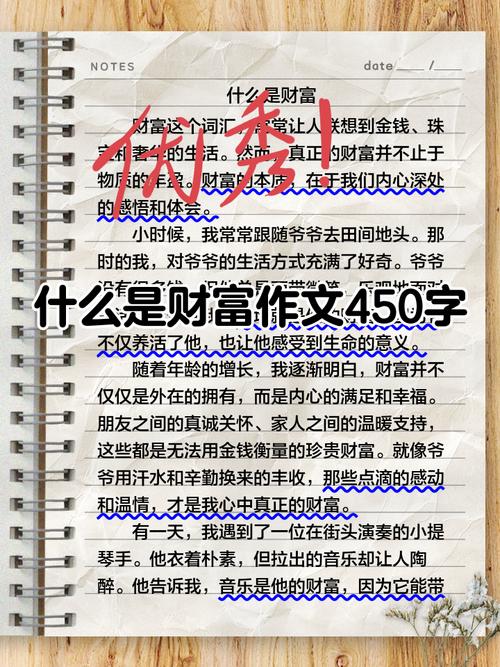 NOTES
date ____ / ____
什么是财富
优秀！
财富这个词汇，常常让人联想到金钱、珠
宝和奢华的生活。然而，真正的财富并不止于
物质的。财富的本质，在于我们内心深处
的感悟和体会。
小时候，我常常跟随爷爷去田间地头。那
时的我，对爷爷的生活方式充满了好奇。爷爷
没有很多钱，但他总是面带微笑，乐观地面对
什么是财富作文450字
不仅养活了他，也让他感受到生命的意义。
随着年龄的增长，我逐渐明白，财富并不
仅仅是外在的拥有，而是内心的满足和幸福。
朋友之间的真诚关怀、家人之间的温暖支持，
这些都是无法用金钱衡量的珍贵财富。就像爷
爷用汗水和辛勤换来的丰收，那些点滴的感动
和温情，才是我心中真正的财富。
有一天，我遇到了一位在街头演奏的小提
琴手。他衣着朴素，但拉出的音乐却让人陶
醉。他告诉我，音乐是他的财富，因为它能带